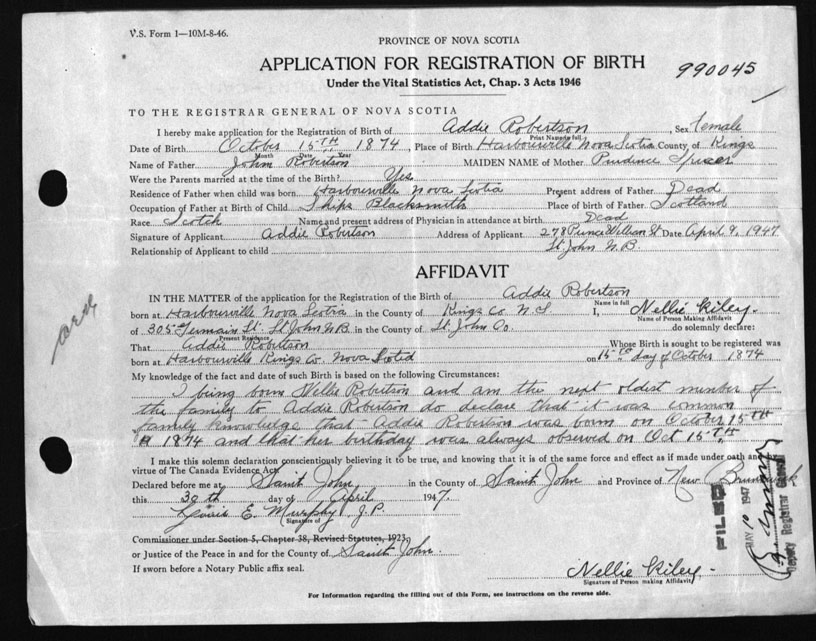 V.S. Form 1—10M-8-46.
PROVINCE OF NOVA SCOTIA
APPLICATION FOR REGISTRATION OF BIRTH
990045
Under the Vital Statistics Act, Chap. 3 Acts 1946
TO THE REGISTRAR GENERAL OF NOVA SCOTIA
I hereby make application for the Registration of Birth of Addie Robertson, Sex Female
Print Name in full
Date of Birth October 15TH 1874, Place of Birth Harbourville Nova Scotia County of Kings
Month Date Year
Name of Father John Robertson MAIDEN NAME of Mother Prudence Spicer
Were the Parents married at the time of the Birth? Yes
Residence of Father when child was born Harbourville Nova Scotia Present address of Father Dead
Occupation of Father at Birth of Child Ships Blacksmith Place of birth of Father Scotland
Race Scotch Name and present address of Physician in attendance at birth Dead
Signature of Applicant Addie Robertson Address of Applicant 278 Prince William St Date April 9, 1947
Relationship of Applicant to child St. John N.B
AFFIDAVIT
card
IN THE MATTER of the application for the Registration of the Birth of Addie Robertson
Name in full
born at Harbourville Nova Scotia in the County of Kings Co N S I, Nellie Kiley
Name of Person Making Affidavit
of 305 Germain St. St John N.B in the County of St. John Co. do solemnly declare:
Present Residence
That Addie Robertson Whose Birth is sought to be registered was
born at Harbourville Kings Co. Nova Scotia on 15TH day of October 1874
My knowledge of the fact and date of such Birth is based on the following Circumstances:
I being born Nellie Robertson and am the next oldest member of
the family to Addie Robertson do declare that it was common
family knowledge that Addie Robertson was born on October 15TH
1874 and that her birthday was always observed on Oct 15TH
I make this solemn declaration conscientiously believing it to be true, and knowing that it is of the same force and effect as if made under oath and
virtue of The Canada Evidence Act.
Declared before me at Saint John in the County of Saint John and Province of New Brunswick
this 30th day of April 1947.
E. Murphy J.P.
Signature of
Commissioner under Section 5, Chapter 38, Revised Statutes, 1923,
or Justice of the Peace in and for the County of Saint John.
If sworn before a Notary Public affix seal.
FILED
MAY 10 1947
Deputy Registrar General
Nellie Kiley
Signature of Person making Affidavit
For Information regarding the filling out of this Form, see instructions on the reverse side.